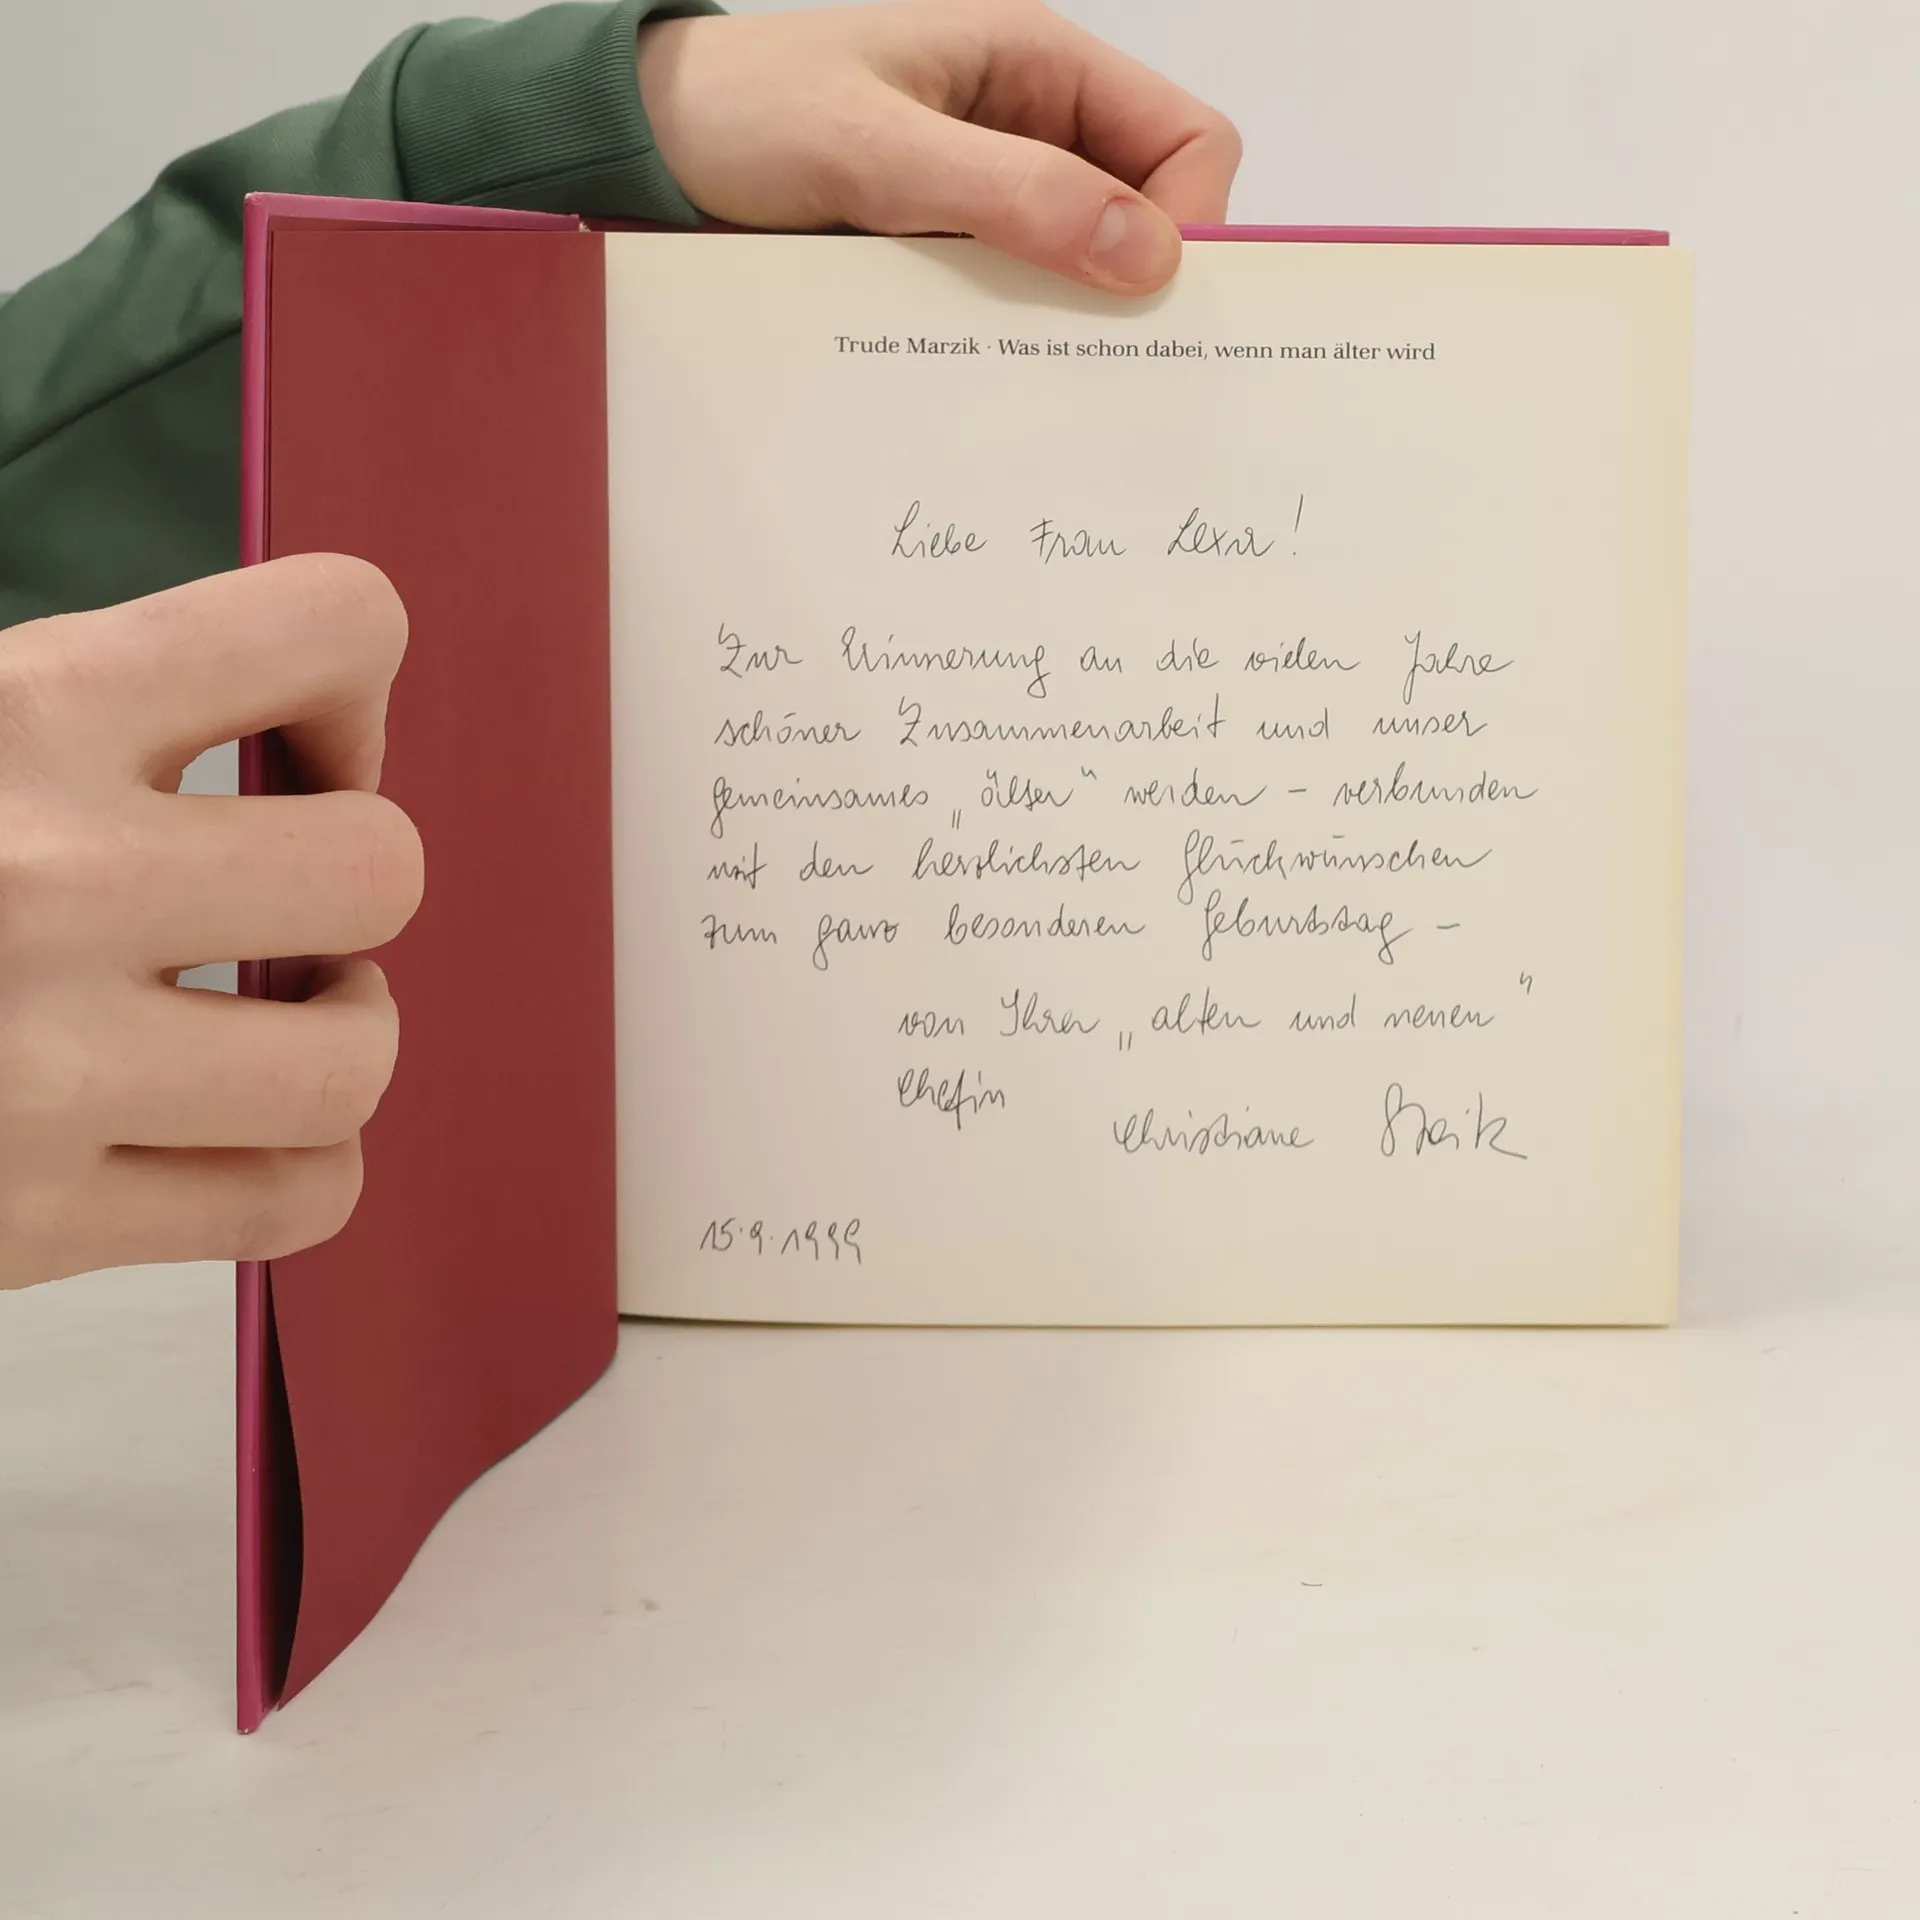 Trude Marzik · Was ist schon dabei, wenn man älter wird
Liebe Frau Lexa!
Zur Erinnerung an die vielen Jahre
schöner Zusammenarbeit und unser
gemeinsames „älter“ werden – verbunden
mit den herzlichsten Glückwünschen
zum ganz besonderen Geburtstag –
von Ihrer „alten und neuen“
Chefin
Christiane
15.9.1999